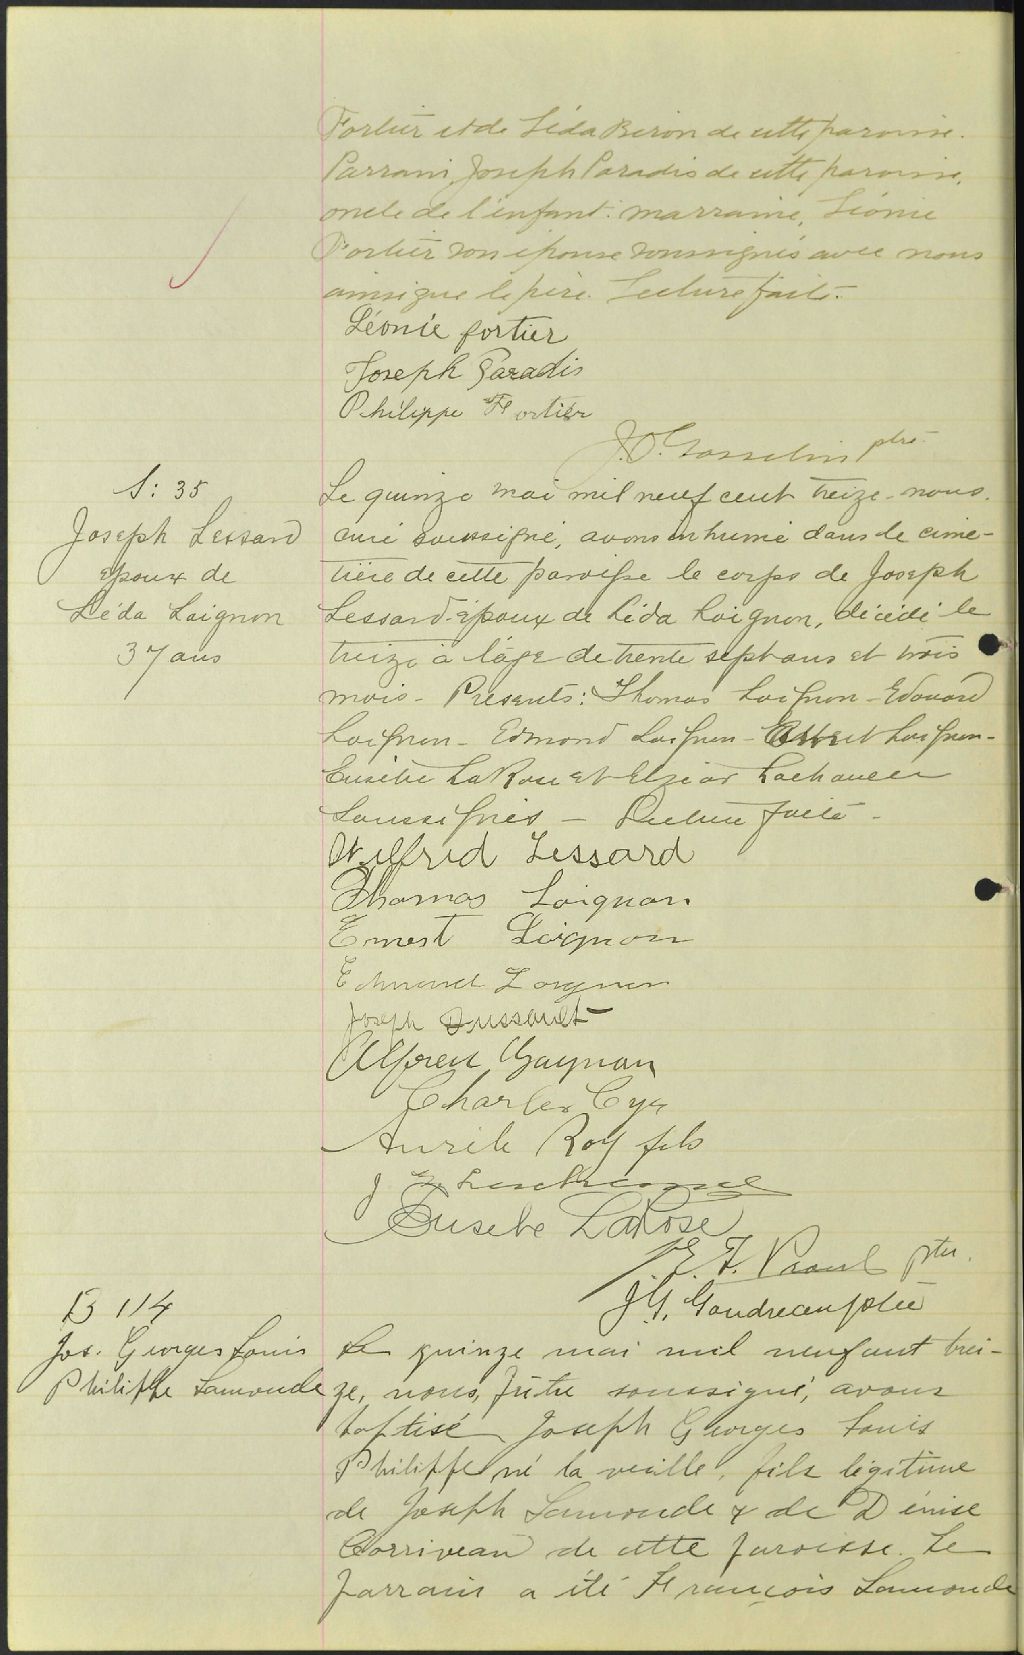 Fortier et de Léda Biron de cette paroisse.
Parrain, Joseph Paradis de cette paroisse,
oncle de l'enfant: marraine, Léonie
Fortier son épouse soussignés avec nous
ainsi que le père. Lecture faite.
Léonie fortier
Joseph Paradis
Philippe Fortier
J.O. Gosselin ptre
S: 35
Joseph Lessard
époux de
Léda Loignon
37 ans
Le quinze mai mil neuf cent treize - nous
curé soussigné, avons inhumé dans le cime-
tière de cette paroisse le corps de Joseph
Lessard époux de Léda Loignon, décédé le
treize à l'âge de trente sept ans et trois
mois - Présents: Thomas Loignon - Edouard
Loignon - Edmond Loignon - Loignon -
Eusèbe LaRose et Elzéar Lachance
Soussignés - Lecture faite -
Wilfrid Lessard
Thomas Loignon
Ernest Loignon
Edmond Loignon
Joseph Dussault
Alfred Gagnon
Charles Cyr
Aurèle Roy fils
J
Eusebe LaRose
J. G. Goudreau ptre
B 114
Jos. Georges Louis
Philippe Lamonde
Le quinze mai mil neuf cent trei-
ze, nous, prêtre soussigné, avons
baptisé Joseph Georges Louis
Philippe né la veille, fils légitime
de Joseph Lamonde & de Dénise
Corriveau de cette paroisse. Le
parrain a été François Lamonde